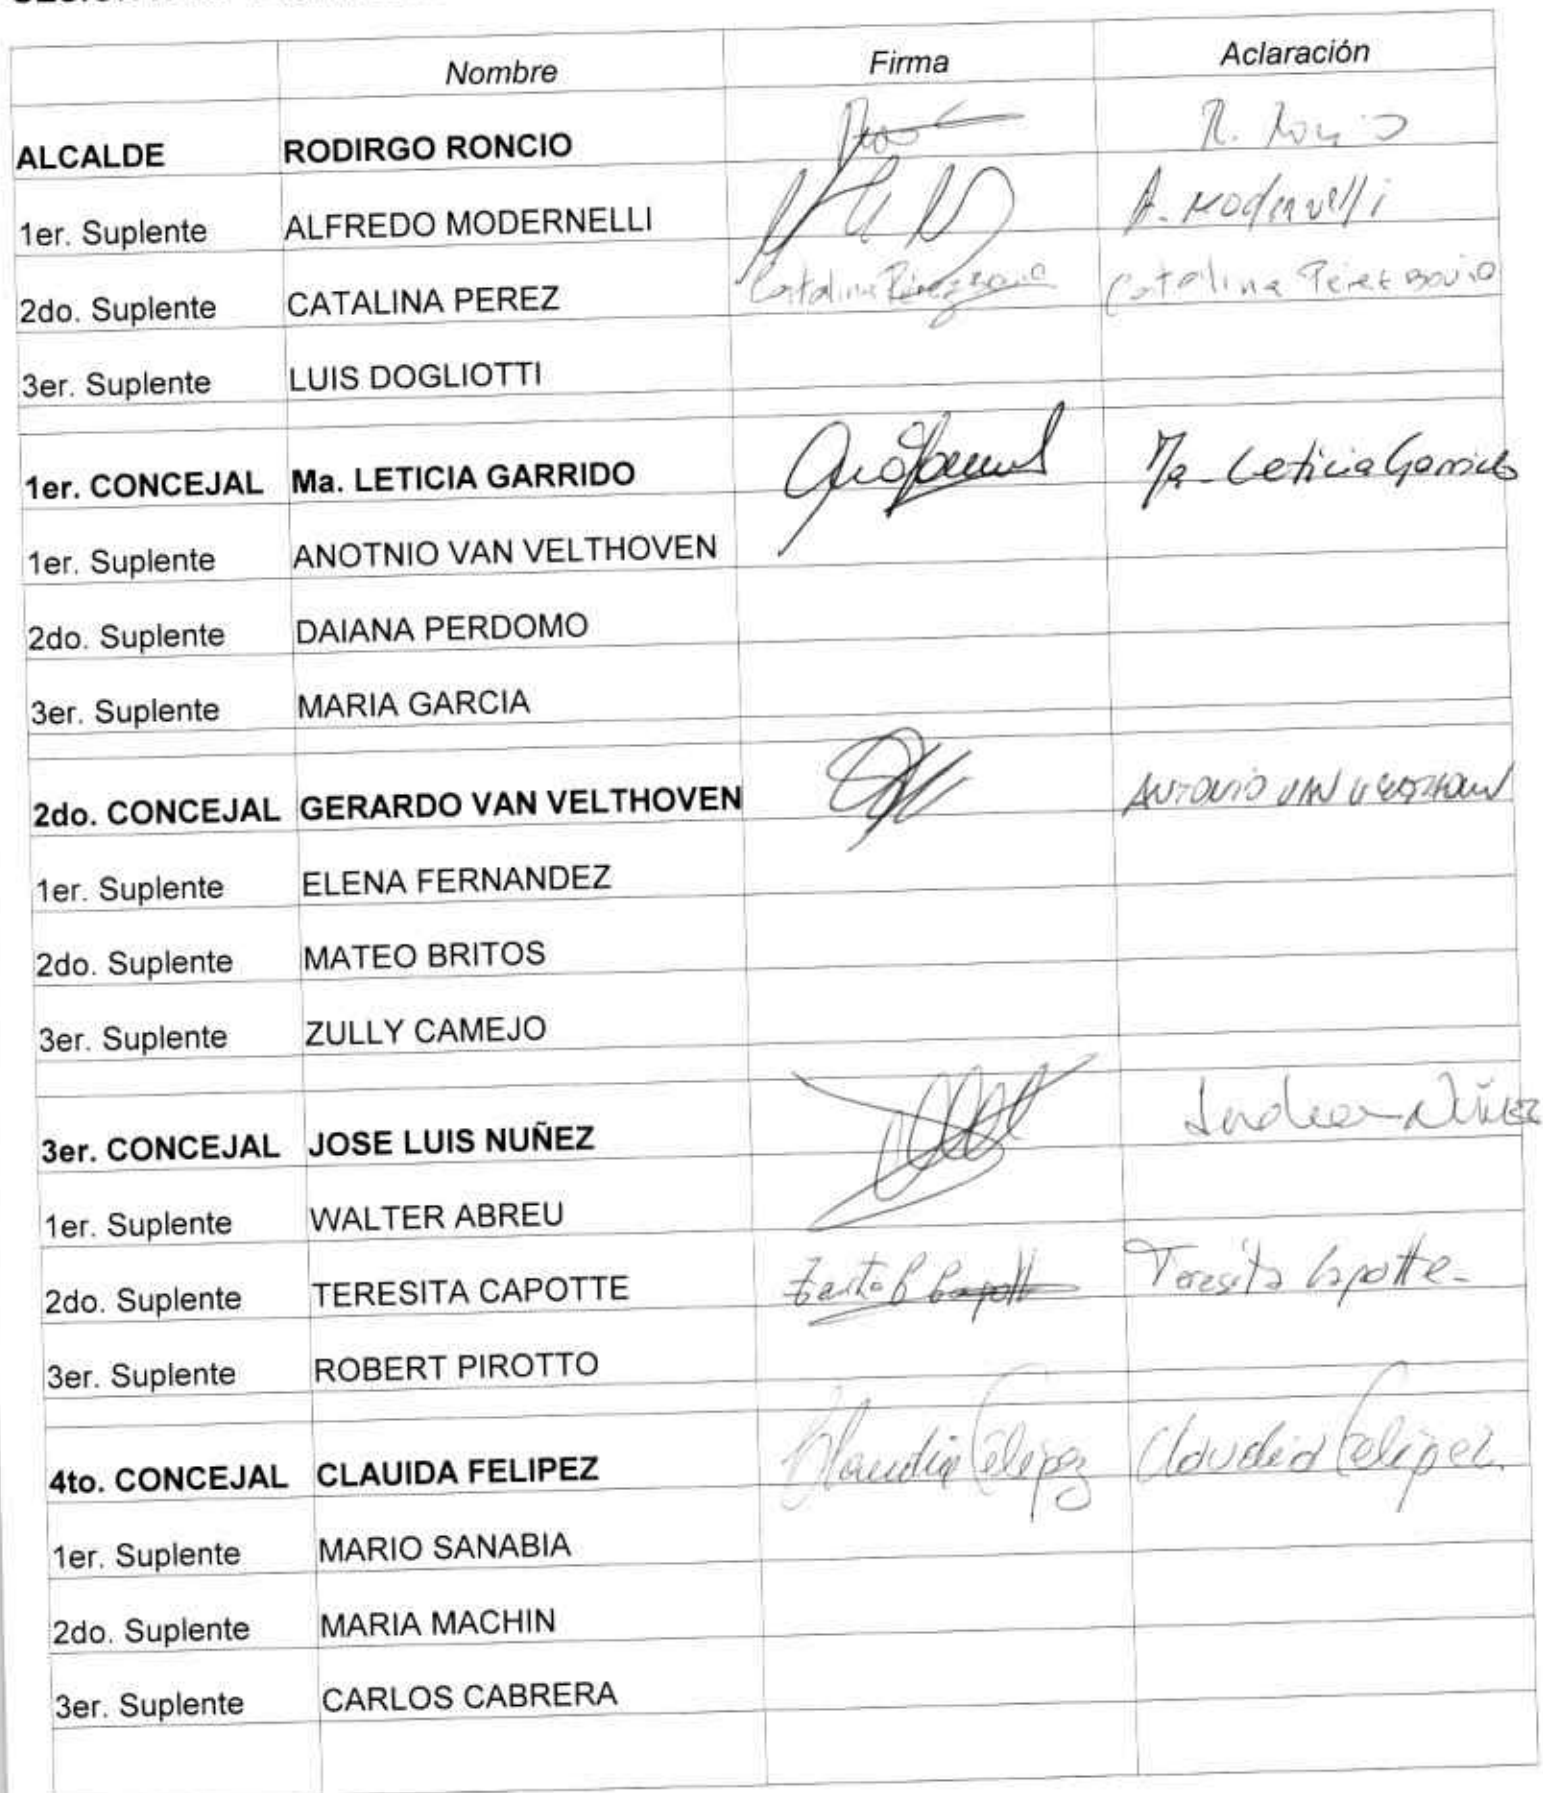 Nombre Firma Aclaración
ALCALDE RODIRGO RONCIO R. Roncio
1er. Suplente ALFREDO MODERNELLI A. Modernelli
2do. Suplente CATALINA PEREZ Catalina Pérez Bovio Catalina Perez Bovio
3er. Suplente LUIS DOGLIOTTI
1er. CONCEJAL Ma. LETICIA GARRIDO Ma. Leticia Garrido
1er. Suplente ANOTNIO VAN VELTHOVEN
2do. Suplente DAIANA PERDOMO
3er. Suplente MARIA GARCIA
2do. CONCEJAL GERARDO VAN VELTHOVEN ANTONIO VAN VELTHOVEN
1er. Suplente ELENA FERNANDEZ
2do. Suplente MATEO BRITOS
3er. Suplente ZULLY CAMEJO
3er. CONCEJAL JOSE LUIS NUÑEZ Núñez
1er. Suplente WALTER ABREU
2do. Suplente TERESITA CAPOTTE Teresita Capotte
3er. Suplente ROBERT PIROTTO
4to. CONCEJAL CLAUIDA FELIPEZ Claudia Felipez Claudia Felipez
1er. Suplente MARIO SANABIA
2do. Suplente MARIA MACHIN
3er. Suplente CARLOS CABRERA